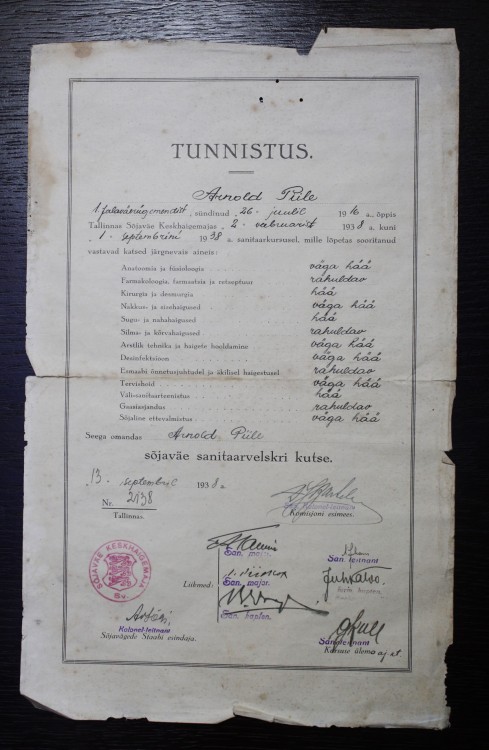 TUNNISTUS.
Arnold Piile
1. jalaväerügemendist, sündinud 26. juulil 1916 a., õppis
Tallinnas Sõjaväe Keskhaigemajas 2. veebruarist 1938 a. kuni
1. septembrini 1938 a. sanitaarkursusel, mille lõpetas sooritanud
vastavad katsed järgnevais aineis:
Anatoomia ja füsioloogia väga hää
Farmakoloogia, farmaatsia ja retseptuur rahuldav
Kirurgia ja desmurgia hää
Nakkus- ja sisehaigused väga hää
Sugu- ja nahahaigused hää
Silma- ja kõrvahaigused rahuldav
Arstlik tehnika ja haigete hooldamine väga hää
Desinfektsioon väga hää
Esmaabi õnnetusjuhtudel ja äkilisel haigestusel rahuldav
Tervishoid väga hää
Väli-sanitaarteenistus hää
Gaasiasjandus rahuldav
Sõjaline ettevalmistus väga hää
Seega omandas Arnold Piile
sõjaväe sanitaarvelskri kutse.
13. septembril 1938 a.
Nr. 2138
Tallinnas.
Kolonel-leitnant
Komisjoni esimees.
SÕJAVÄE KESKHAIGEMAJA
Sv.
Liikmed:
San. major.
San. leitnant
San. major.
San. kapten.
Kolonel-leitnant
Sõjavägede Staabi esindaja.
San. leitnant
Kursuse ülema aj. kt.